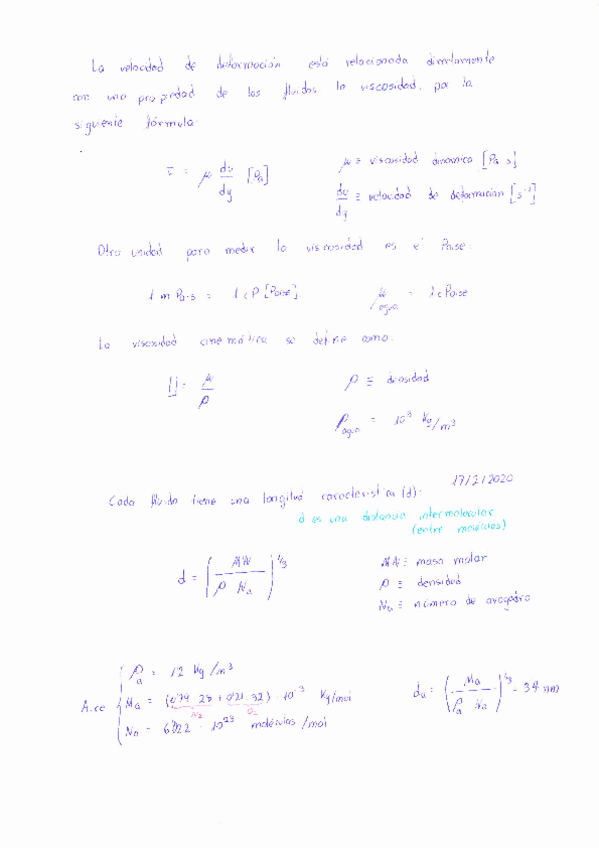 La velocidad de deformación está relacionada directamente
con una propiedad de los fluidos la viscosidad, por la
siguiente fórmula:
τ = μ dv/dy [Pa]
μ ≡ viscosidad dinámica [Pa s]
dv/dy ≡ velocidad de deformación [s⁻¹]
Otra unidad para medir la viscosidad es el Poise:
1 m Pa·s = 1 cP [Poise]
μ agua = 1 cPoise
La viscosidad cinemática se define como:
= μ/ρ
ρ ≡ densidad
ρ agua = 10³ Kg/m³
17/2/2020
Cada fluido tiene una longitud característica (d):
d es una distancia intermolecular
(entre moléculas)
d = (M / ρ Na)^1/3
M ≡ masa molar
ρ ≡ densidad
Na ≡ número de avogadro
ρa = 1 2 Kg/m³
Ma = (0'79 28 + 0'21 32) · 10⁻³ Kg/mol
N2 O2
Na = 6'022 · 10²³ moléculas/mol
da = (Ma / ρa Na)^1/3 = 3'4 nm